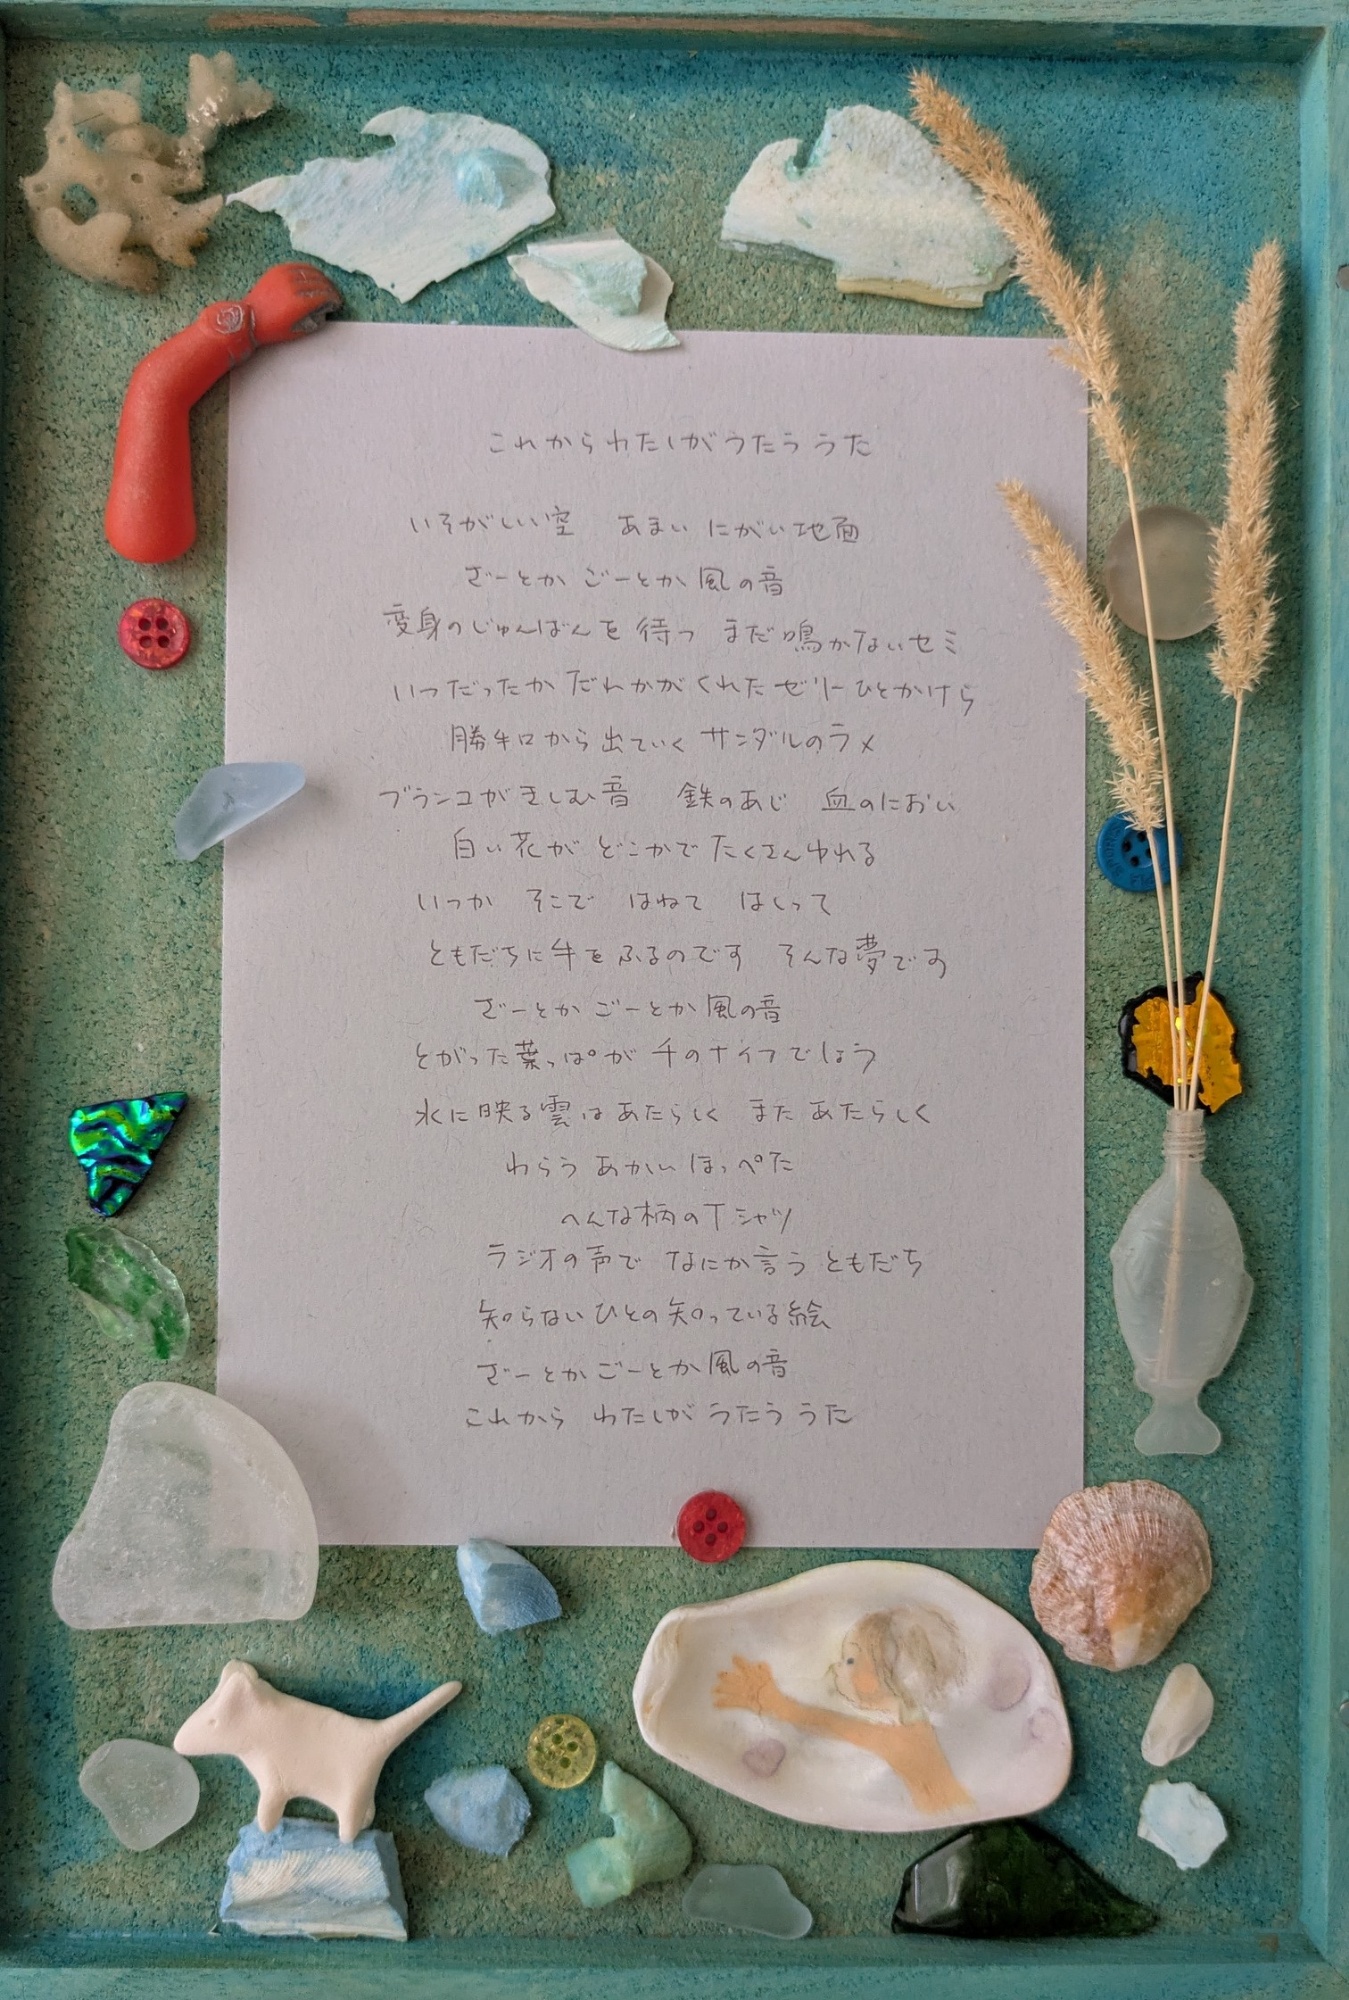 これからわたしがうたう うた
いそがしい空　あまい にがい地面
ざーとか ごーとか 風の音
変身のじゅんばんを 待つ　まだ鳴かないセミ
いつだったか だれかが くれた ゼリー ひとかけら
勝手口から出ていく サンダルのラメ
ブランコが きしむ音　鉄のあじ　血のにおい
白い花が どこかで たくさんゆれる
いつか　そこで　はねて　はしって
ともだちに手を ふるのです　そんな夢です
ざーとか ごーとか風の音
とがった葉っぱが 千のナイフでしょう
水に映る雲は あたらしく　また あたらしく
わらう あかい ほっぺた
へんな柄のTシャツ
ラジオの声で　なにか言う ともだち
知らない ひとの 知っている絵
ざーとか ごーとか 風の音
これから わたしが うたう うた